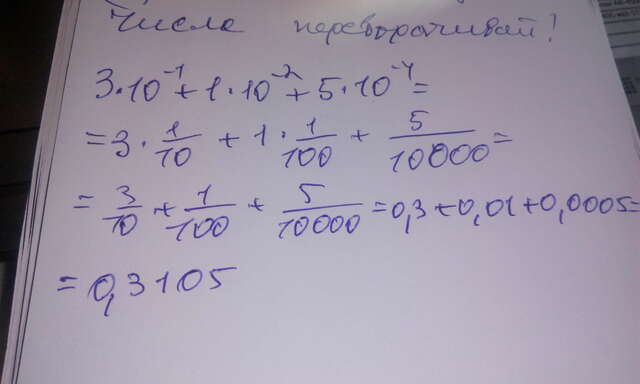 Числа переворачивай!
3·10⁻¹+1·10⁻²+5·10⁻⁴=
=3·1/10+1·1/100+5/10000=
=3/10+1/100+5/10000=0,3+0,01+0,0005=
=0,3105